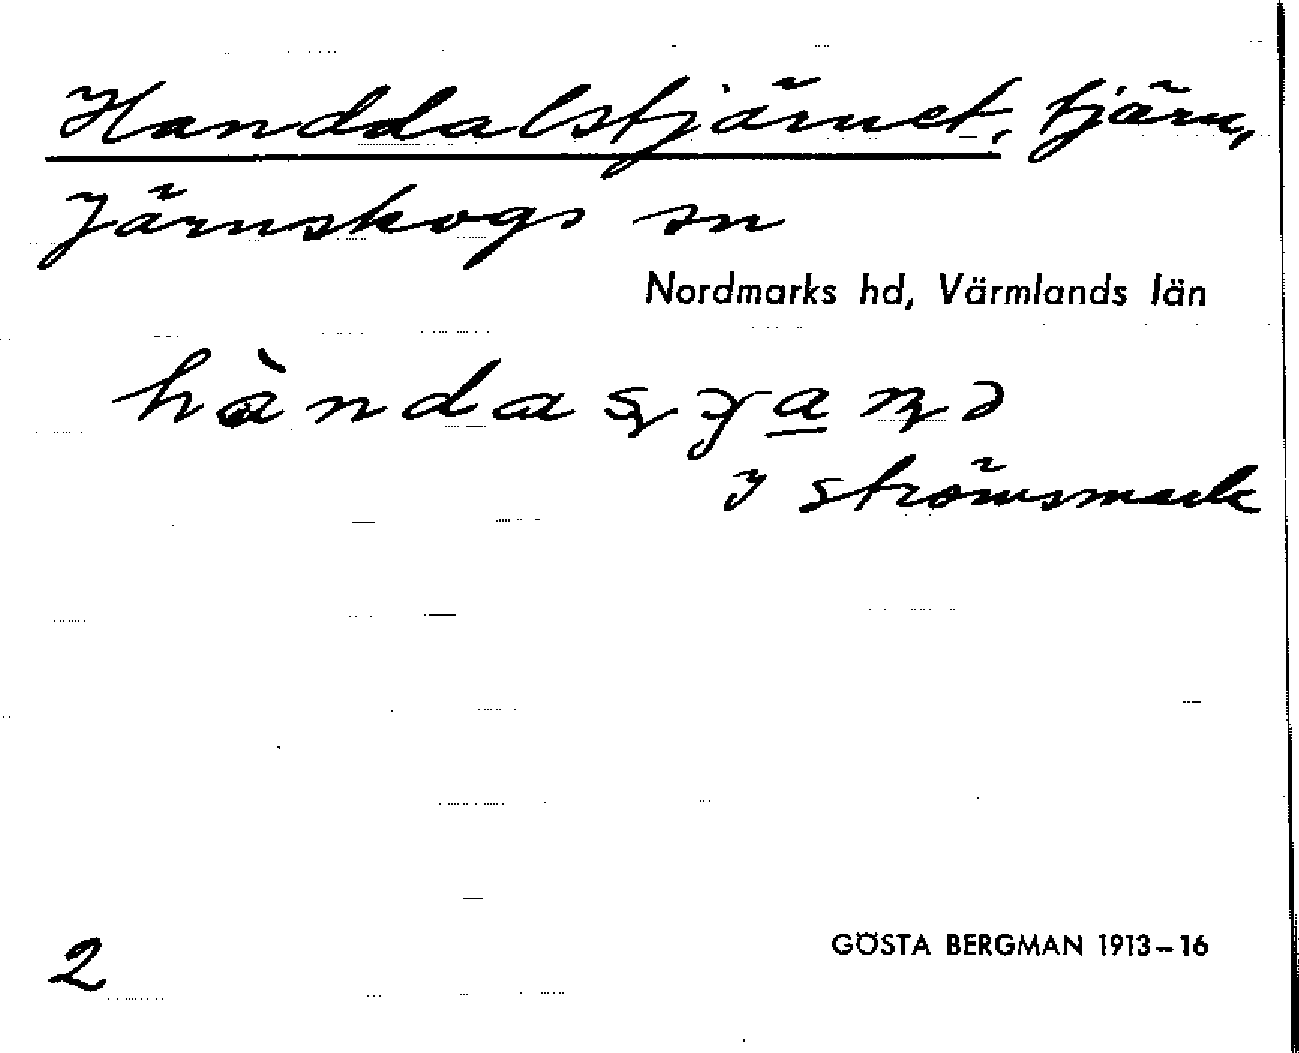 Handdalstjärnet, tjärn,
Järnskogs sn
Nordmarks hd, Värmlands län
I Strömsmark
2
GÖSTA BERGMAN 1913–16